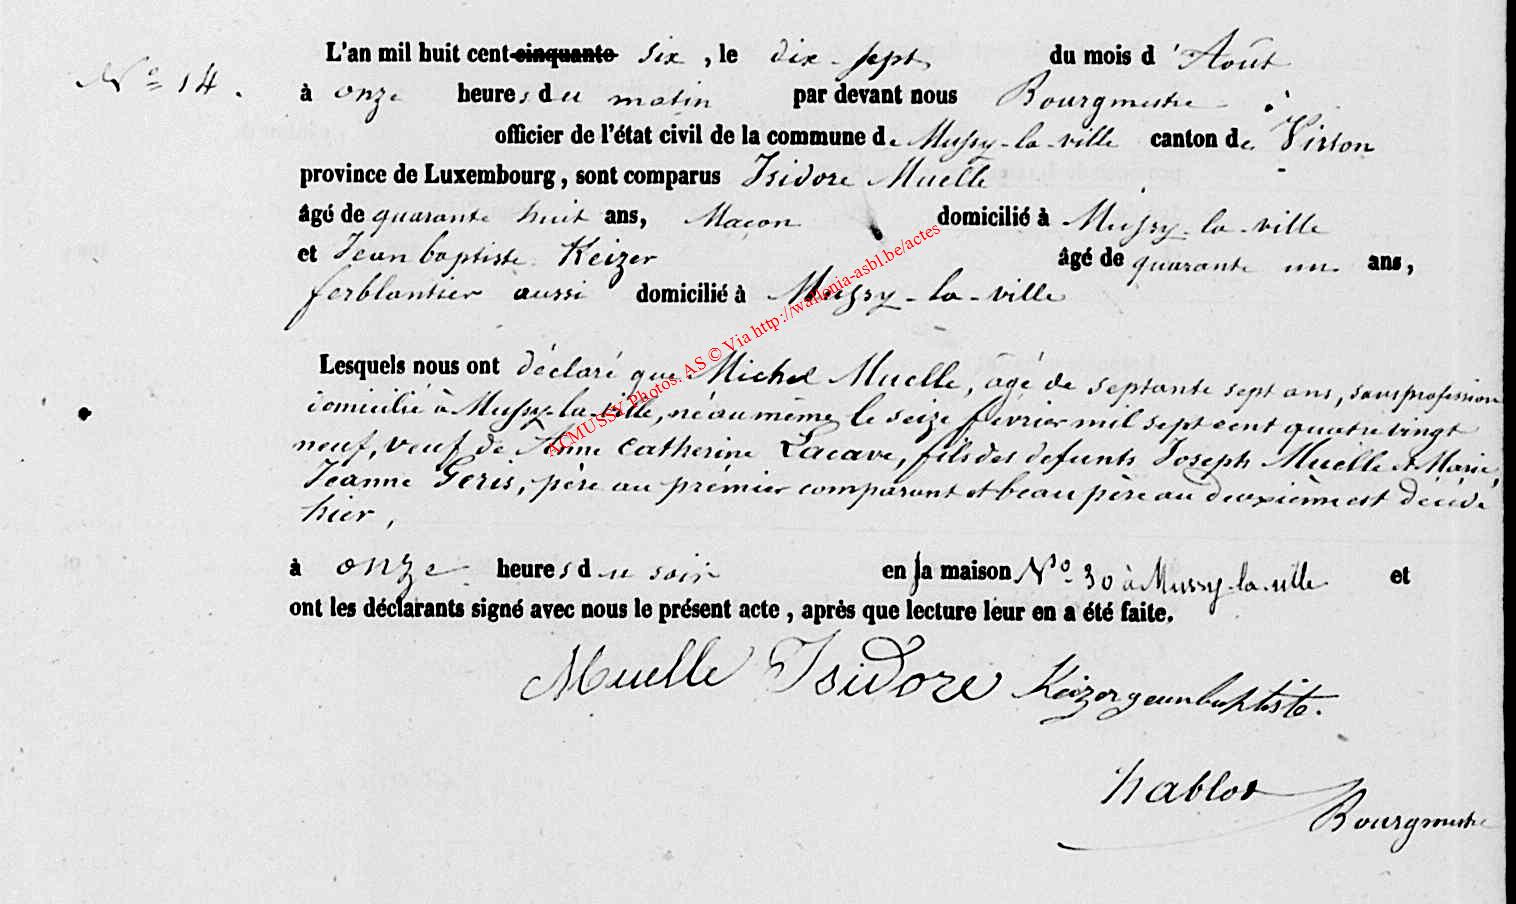 N° 14.
L'an mil huit cent cinquante six, le dix-sept du mois d'Août
à onze heures du matin par devant nous Bourgmestre
officier de l'état civil de la commune de Mussy-la-ville canton de Virton
province de Luxembourg, sont comparus Isidore Muelle
âgé de quarante huit ans, Maçon domicilié à Mussy-la-ville
et Jean baptiste Keizer âgé de quarante un ans,
ferblantier aussi domicilié à Mussy-la-ville
Lesquels nous ont déclaré que Michel Muelle, âgé de septante sept ans, sans profession
domicilié à Mussy-la-ville, né au même, le seize fevrier mil sept cent quatre vingt
neuf, veuf de Anne Catherine Lacave, fils des defunts Joseph Muelle et Marie
Jeanne Geris, père au prémier comparant et beau père au deuxième est décédé
hier,
à onze heures du soir en sa maison N° 30 à Mussy-la-ville et
ont les déclarants signé avec nous le présent acte, après que lecture leur en a été faite.
Muelle Isidore Keizer jean baptiste.
hablot
Bourgmestre
ACMUSSY Photos. AS © Via http://wallonia-asbl.be/actes